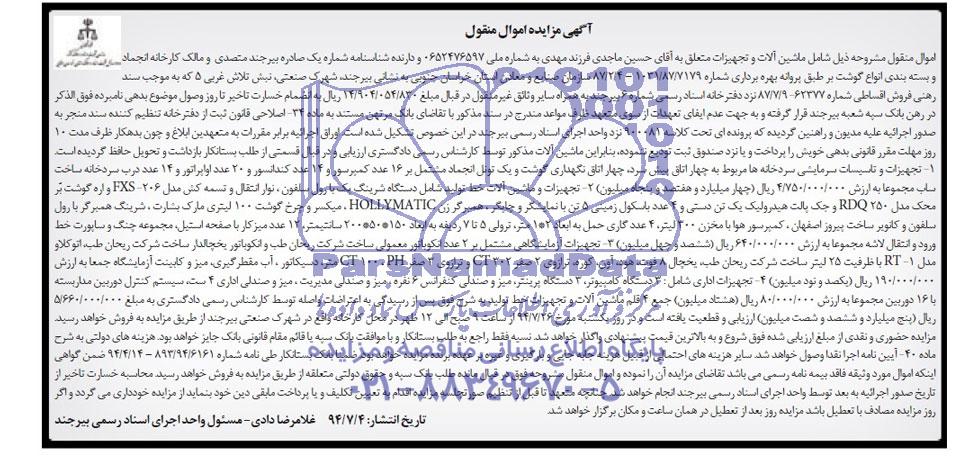 آگهی مزایده اموال منقول
اموال منقول مشروحه ذیل شامل ماشین آلات و تجهیزات متعلق به آقای حسین ماجدی فرزند مهدی به شماره ملی ۰۶۵۲۴۷۶۵۹۷ و دارنده شناسنامه شماره یک صادره بیرجند متصدی و مالک کارخانه انجماد
و بسته بندی انواع گوشت بر طبق پروانه بهره برداری شماره ۱۰۳۱/۸۷/۷۱۷۹ – ۸۷/۲/۴ سازمان صنایع و معادن استان خراسان جنوبی به نشانی بیرجند، شهرک صنعتی، نبش تلاش غربی ۵ که به موجب سند
رهنی فروش اقساطی شماره ۶۲۳۷۷-۸۷/۷/۹ نزد دفترخانه اسناد رسمی شماره ۶ بیرجند به همراه سایر وثائق غیرمنقول در قبال مبلغ ۱۴/۹۰۴/۰۵۴/۸۳۰ ریال به انضمام خسارت تاخیر تا روز وصول موضوع بدهی نامبرده فوق الذکر
در رهن بانک سپه شعبه بیرجند قرار گرفته و به جهت عدم ایفای تعهدات از سوی متعهد ظرف مواعد مندرج در سند مذکور با تقاضای بانک مرتهن مستند به ماده ۳۴- اصلاحی قانون ثبت از دفترخانه تنظیم کننده سند منجر به
صدور اجرائیه علیه مدیون و راهنین گردیده که پرونده ای تحت کلاسه ۹۰۰۰۸۱ نزد واحد اجرای اسناد رسمی بیرجند در این خصوص تشکیل شده است. اوراق اجرائیه برابر مقررات به متعهدین ابلاغ و چون بدهکار ظرف مدت ۱۰
روز مهلت مقرر قانونی بدهی خویش را پرداخت و یا نزد صندوق ثبت تودیع ننموده، بنابراین ماشین آلات مذکور توسط کارشناس رسمی دادگستری ارزیابی و در قبال قسمتی از طلب بستانکار بازداشت و تحویل حافظ گردیده است.
۱- تجهیزات و تاسیسات سرمایشی سردخانه ها مربوط به چهار اتاق پیش سرد، چهار اتاق نگهداری گوشت و یک تونل انجماد مشتمل بر ۱۶ عدد کمپرسور و ۱۴ عدد کندانسور و ۲۰ عدد اواپراتور و ۱۴ عدد درب سردخانه ساخت
ساب مجموعا به ارزش ۴/۷۵۰/۰۰۰/۰۰۰ ریال (چهار میلیارد و هفتصد و پنجاه میلیون) ۲- تجهیزات و ماشین آلات خط تولید شامل دستگاه شرینگ پک با رول سلفون، نوار انتقال و تسمه کش مدل FXS -۲۰۶ و اره گوشت بُر
محک مدل RDQ ۲۵۰ و جک پالت هیدرولیک یک تن دستی و ۴ عدد باسکول زمینی ۵ تن با نمایشگر و چاپگر، همبرگر زن HOLLYMATIC ، میکسر و چرخ گوشت ۱۰۰ لیتری مارک بشارت، شرینگ همبرگر با رول
سلفون و کانویر ساخت پیروز اصفهان، کمپرسور هوا با مخزن ۳۰۰ لیتر، ۴ عدد گاری حمل به ابعاد ۲*۱ متر، ترولی ۵ تا ۷ ردیفه به ابعاد ۱۵۰*۵۰*۲۰۰ سانتیمتر، ۱۲ عدد میز کار با صفحه استیل، مجموعه چنگ و ساپورت خط
ورود و انتقال لاشه مجموعا به ارزش ۶۴۰/۰۰۰/۰۰۰ ریال (ششصد و چهل میلیون) ۳- تجهیزات آزمایشگاهی مشتمل بر ۲ عدد انکوباتور معمولی ساخت شرکت ریحان طب و انکوباتور یخچالدار ساخت شرکت ریحان طب، اتوکلاو
مدل RT -۱ با ظرفیت ۲۵ لیتر ساخت شرکت ریحان طب، یخچال ۸ فوت، هود، آون، کوره، ترازوی ۲ صفر CT ۳۰۲ و ترازوی ۳ صفر CT ۱۰۰ ، PH متر، دسیکاتور، آب مقطر گیری، میز و کابینت آزمایشگاه جمعا به ارزش
۱۹۰/۰۰۰/۰۰۰ ریال (یکصد و نود میلیون) ۴- تجهیزات اداری شامل: ۲ دستگاه کامپیوتر، ۳ دستگاه پرینتر، میز و صندلی کنفرانس ۶ نفره، میز و صندلی مدیریت، میز و صندلی اداری ۴ ست، سیستم کنترل دوربین مداربسته
با ۱۶ دوربین مجموعا به ارزش ۸۰/۰۰۰/۰۰۰ ریال (هشتاد میلیون) جمع ۴ قلم ماشین آلات و تجهیزات خط تولید به شرح فوق پس از رسیدگی به اعتراضات واصله توسط کارشناس رسمی دادگستری به مبلغ ۵/۶۶۰/۰۰۰/۰۰۰
ریال (پنج میلیارد و ششصد و شصت میلیون) ارزیابی و قطعیت یافته است و در روز یکشنبه مورخ ۹۴/۷/۲۶ از ساعت ۹ صبح الی ۱۲ ظهر در محل کارخانه واقع در شهرک صنعتی بیرجند از طریق مزایده به فروش خواهد رسید.
مزایده حضوری و نقدی از مبلغ ارزیابی شده فوق شروع و به بالاترین قیمت پیشنهادی واگذار خواهد شد. نسیه فقط راجع به طلب بستانکار و با موافقت بانک سپه یا قائم مقام قانونی بانک جایز خواهد بود. هزینه های دولتی به شرح
ماده ۴۰- آیین نامه اجرا نقدا وصول خواهد شد. سایر هزینه های احتمالی از قبیل هزینه جابه جایی و بارگیری و غیره بر عهده برنده مزایده خواهد بود. ضمنا بانک بستانکار طی نامه شماره ۸۹۳/۹۴/۶۱۶۱ – ۹۴/۴/۱۴ ضمن گواهی
اینکه اموال مورد وثیقه فاقد بیمه نامه رسمی می باشد تقاضای مزایده آن را نموده و اموال منقول مشروحه فوق در قبال مانده طلب بانک سپه و حقوق دولتی متعلقه از طریق مزایده به فروش خواهد رسید. محاسبه خسارت تاخیر از
تاریخ صدور اجرائیه به بعد توسط واحد اجرای اسناد رسمی بیرجند انجام خواهد شد. چنانچه متعهد تا قبل از تنظیم صورتجلسه مزایده اقدام به تعیین تکلیف و یا پرداخت مابقی دین خود بنماید از مزایده خودداری می گردد و اگر
روز مزایده مصادف با تعطیل باشد مزایده روز بعد از تعطیل در همان ساعت و مکان برگزار خواهد شد.
تاریخ انتشار: ۹۴/۷/۴   غلامرضا دادی- مسئول واحد اجرای اسناد رسمی بیرجند
ParsNamadData
مرکز فرآوری اطلاعات پارس نماد داده ها
پایگاه اطلاع رسانی مناقصه و مزایده
۰۲۱-۸۸۳۴۹۶۷۰-۵